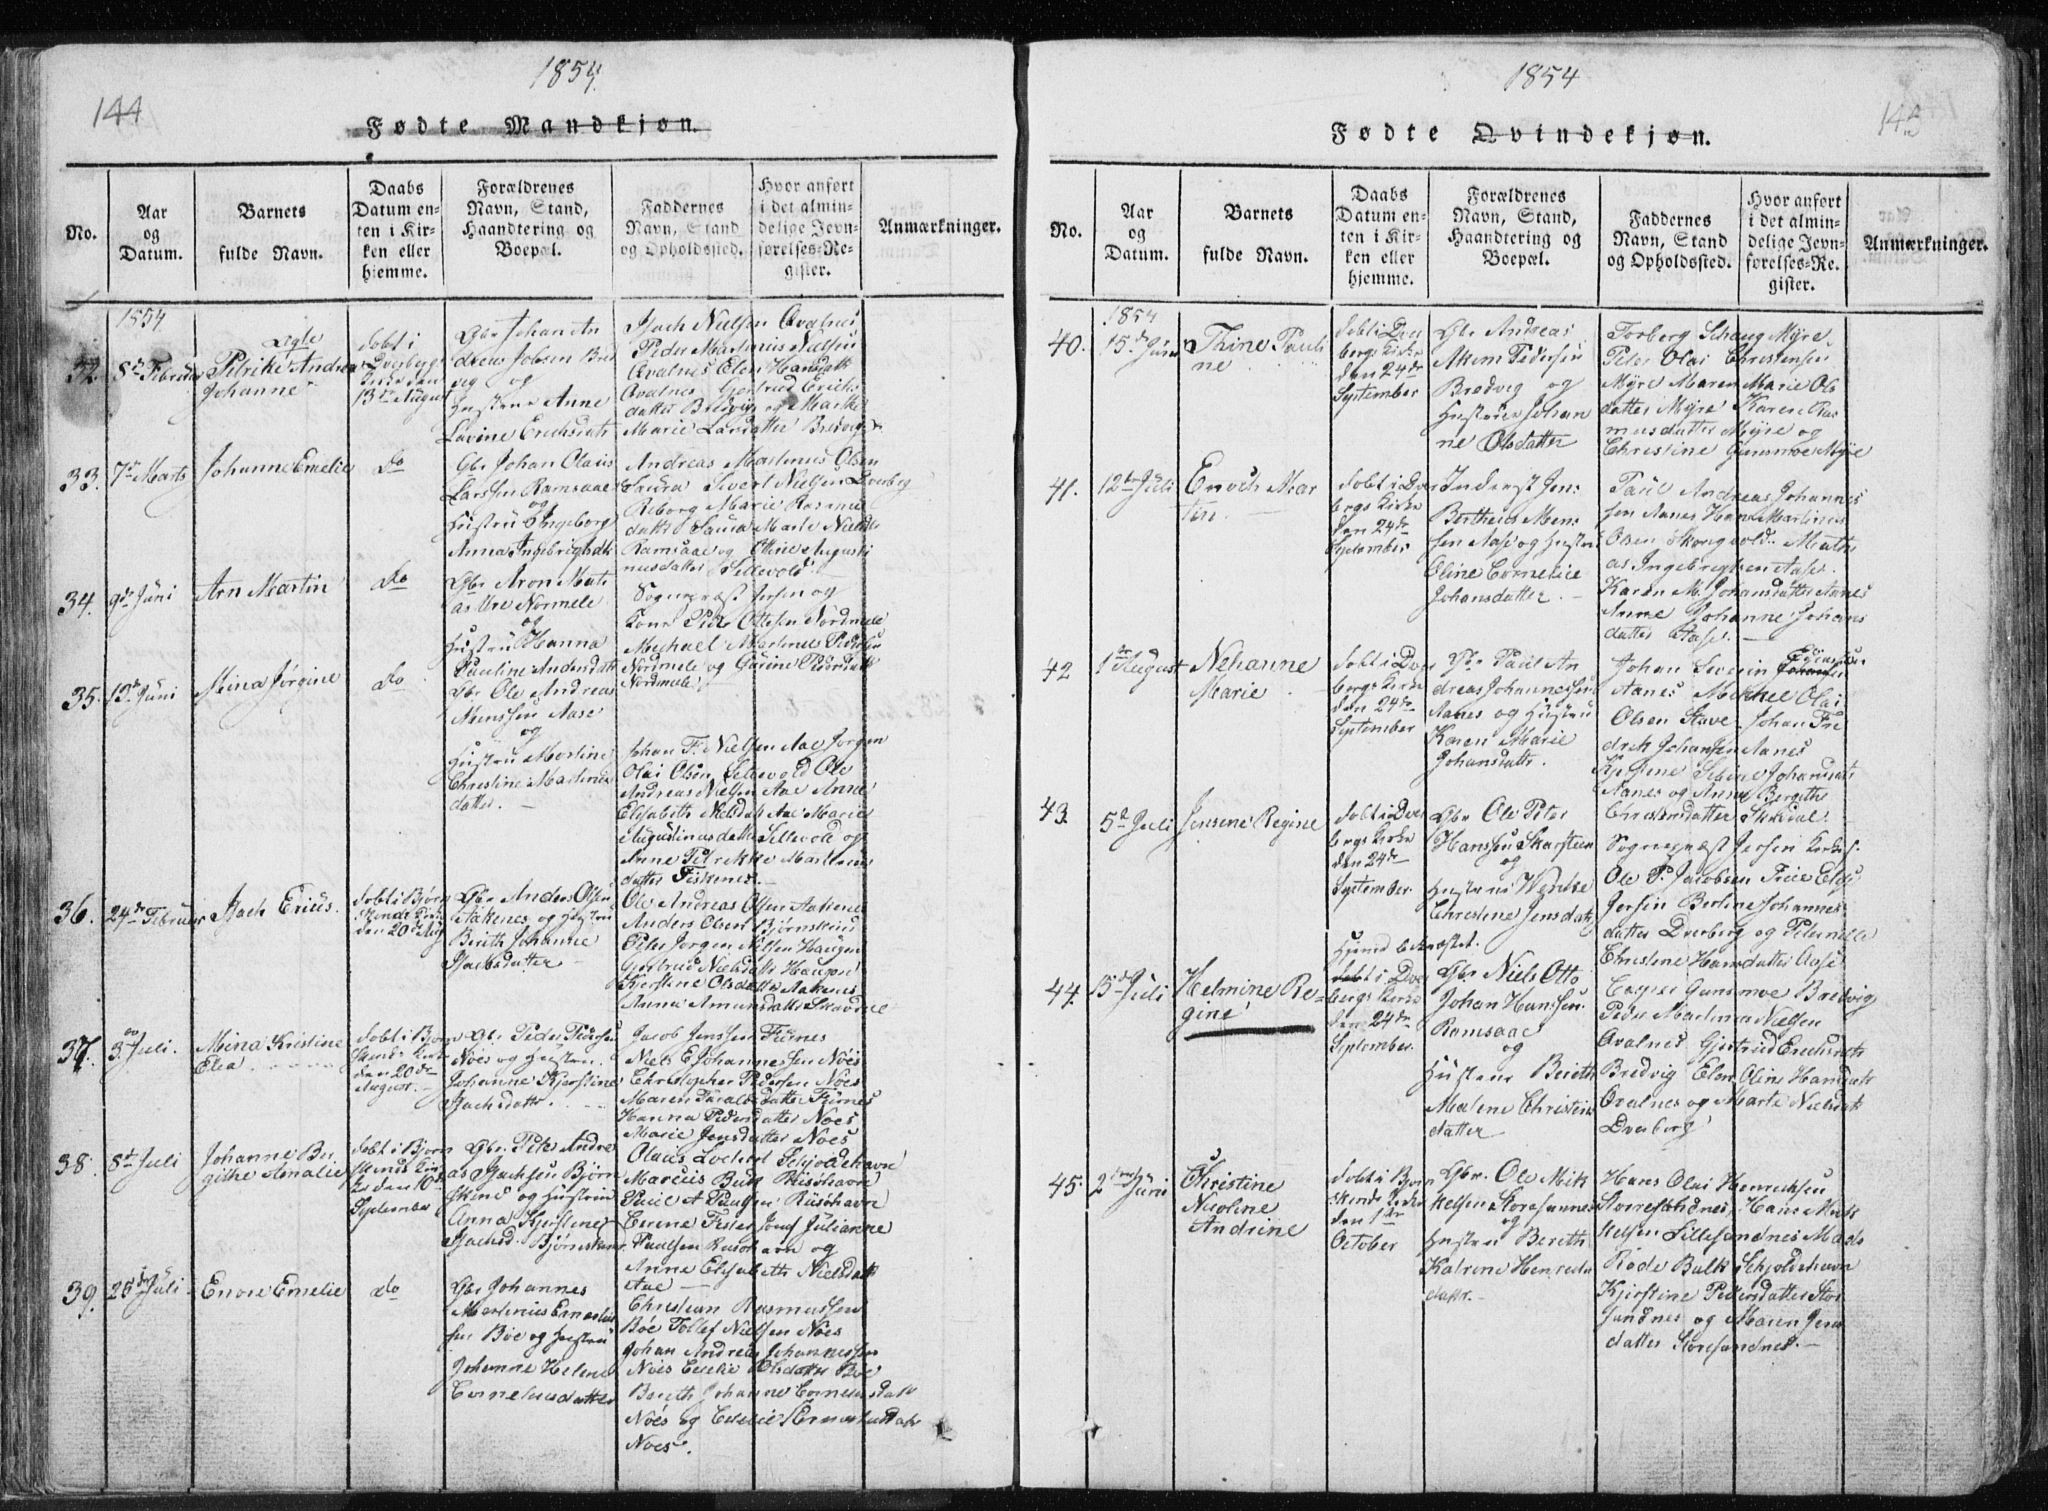 144
1854.
Fødte Mandkjøn.
No.
Aar
og
Datum.
Barnets
fulde Navn.
Daabs
Datum en-
ten i Kir-
ken eller
hjemme.
Forældrenes
Navn, Stand,
Haandtering og
Boepæl.
Faddernes
Navn, Stand
og Opholdssted.
Hvor anført
i det almin-
delige Jevn-
førelses-Re-
gister.
Anmærkninger.
1854
32.
8de Februar
Ægte
Petrike Andrea
Johanne
døbt i
Dverberg
Kirke den
13de August
Gbr Johan An
dreas Jobsen Bred
vig og
Hustrue Anne
Lavine Erichsdatr
Isach Nielsen Avalnes
Peder Martinus Nielsen
Avalnes Elen Hansdatt
Avalnes Gertrud Erichs
datter Bredvig og Marthe
Marie Larsdatter Bredvig
33.
7de Marts
Johanne Emelie
do
Gbr Johan Olaus
Larssen Ramsaae
og
Hustru Ingeborg
Anna Ingebrigtsdatt
Andreas Martinus Olsen
Sivert Nielsen Dverberg
Marie Rasmus
datter Marie Nielsd
Ramsaae og Oline Augusti
nusdatter Sellevold
34.
9de Juni
Arn Martin
do
Gbr Aron Mat
as Ure Normele
og
Hustru Hanna
Pauline Andersdatt
Sognepræst Jersin og
Kone Peder Ottesen Nordmele
Michael Martinus Pedersen
Nordmele og Gurine Pedersdatt
Nordmele
35.
13de Juni
Mina Jørgine
do
Gbr Ole Andreas
Monssen Aase
og
Hustru Martine
Christine Martinus
datter. -
Johan F. Nielsen Aae Jørgen
Olai Olsen Sellevold Ole
Andreas Nielsen Aae Anne
Elisabeth Nielsdatt Aae Marie
Augustinusdatter Sellevold og
Anne Petrikke Martinus
datter Fiskenes. -
36.
24de Februar
Isach Erius.
døbt i Bjørn
skinds Kirke
den 20de Aug
Gbr Anders Olsen
Aakenes og Hustru
Berith Johanne
Isachsdatter -
Ole Andreas Olsen Aakenes
Anders Olsen Bjørnskind
Peter Jørgen Nielsen Haugen
Gjertrud Nielsdatter Haugen
Kjerstine Olsdatter Aakenes
Anne Amundsdatter Skavdne
37.
3die Juli.
Mina Kristine
Elea
døbt i Bjørn
skinds Kirke
den 20de
August. -
Gbr Peder Pedersen
Noes og Hustru
Johanne Kjerstine
Isachsdattr.
Jacob Jenssen Fiernes
Niels E Johannessen Nøes
Christopher Pedersen Noes
Maren Tarald datter Fiernes
Hanna Pedersdatter Noes
Marie Jensdatter Noes
38.
8de Juli
Johanne Be
githe Amalie
døbt i Bjørn
skinds Kir
ke den 10de
September
Gbr. Peter Andre
as Isachsen Bjørn
skind og Hustru
Anna Kjerstine
Isachsd. Bjørnskind
Olaus Lockert Schjoldehavn
Marcus Buch Risøhavn
Paul A Paulsen Risøhavn
Emma Jomf Julianne
Paulsen Risøhavn og
Anne Elisabeth Nielsdatt
Aae -
39.
26de Juli
Enore Emelie
do
Gbr Johannes
Martinus Ernestus
sen Bøe og Hustru
Johanne Helene
Corneliusdatter
Christian Rasmussen
Bøe Tollef Nielsen Nøes
Johan Andreas Johannessen
Nøes Emelie Olsdatter Bøe
Bereth Johanne Corneliusdatt
Nøes og Emelie Ernestusdatr
Noes.
1854
143
Fødte Qvindekjøn.
No.
Aar
og
Datum.
Barnets
fulde Navn.
Daabs
Datum en-
ten i Kir-
ken eller
hjemme.
Forældrenes
Navn, Stand,
Haandtering og
Boepæl.
Faddernes
Navn, Stand
og Opholdssted.
Hvor anført
i det almin-
delige Jevn-
førelses-Re-
gister.
Anmærkninger.
1854
40.
15de Juni
Thine Pauli
ne
døbt i Dver
bergs Kirke
den 24de
September
Gbr Andreas
Akem Pedersen
Bredvig og
Hustrue Johan
ne Olsdatter
Torberg Schaug Myre
Peter Olai Christensen
Myre Maren Marie Ols
datter Myre Karen Ras
musdatter Myre og
Christine Gunsmoe Myre
41.
12te Juli
Enoch Mar
tin. -
døbt i Dver
bergs Kirke
den 24de
September
Inderst Jens
Bertheus Mon
sen Aase og Hustru
Oline Cornelice
Johansdatter. -
Paul Andreas Johannes
sen Aanes Hans Martinus
Olsen Skougvold. Mathi
as Ingebregtsen Aase
Karen M. Johansdatter Aanes
Anne Johanne Johans
datter Aase. -
42
1ste August
Nehanne
Marie
døbt i Dver
bergs Kirke
den 24de
September
Gbr Paul An
dreas Johannessen
Aanes og Hustru
Karen Marie
Johansdattr.
Johan Severin
Aanes Mikkel Olai
Olsen Stave Johan Fre
drik Johansen Aanes
Kjerstine Sebine Johansdatt
Aanes og Anne Bergithe
Christensdatter Skredal
43.
5te Juli
Jensine Regine
døbt i Dver
bergs Kirke
den 24de
September
Gbr Ole Peter
Hanssen Skarsteen
og
Hustrue Wenke
Christine Jensdatt
Sognepræst Jersin
Ole P. Jacobsen
Jersin Berline Johannes
datter Dverberg og Peternelle
Christine Hansdatter Aase
Hjemd. bekræftet.
44.
15de Juli
Helmine Re-
gine
døbt i Dver
bergs Kirke
den 24de
September
Gbr Niels Otto
Johan Hanssen
Ramsaae
og
Hustrue Bereth
Malene Christens
datter
Casper Gunsmoe Bredvig
Peder Martinus Nielsen
Avalnes Gjertrud Erichsdatr
Bredvig Elen Oline Hansdatr
Avalnes og Marte Nielsdatr
Dverberg
45.
2den Juni
Christine
Nicoline
Andrine
døbt i Bjørn
skinds Kirke
den 1ste
October
Gbr. Ole Mik
kelsen Storesannes
og
Hustru Bereth
Katrine Henriks
dattr. -
Hans Olai Henriksen
Storresandnes Hans Mik
kelsen Lillesandnes Mads
Røde Balk Schjoldehavn
Kjerstine Pedersdatter Stor
sandnes og Maren Jens
datter Storesandnes. -